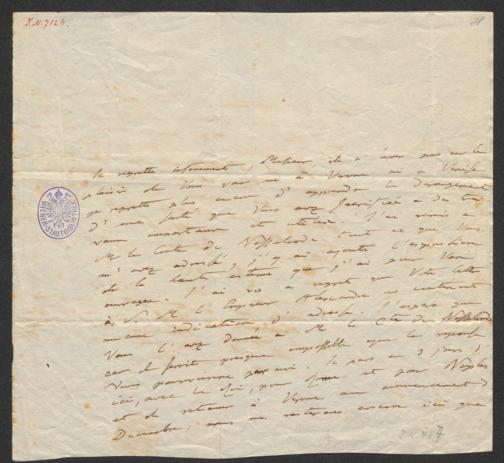 J.N. 7126.
Je regrette infiniment, Monsieur, de n'avoir pas eu le
plaisir de Vous voir ni à Vienne ni à Vérone
je regrette plus encore d'apprendre le dérangement
d'une santé que Vous avez sacrifiée à des
travaux importants et utiles. J'ai remis à
M. le Comte de Nesselrode tout ce que Vous
m'avez adressé, j'y ai ajouté l'expression
de la haute estime que j'ai pour Vos
ouvrages. J'ai vu à regret que Votre lettre
à S. M. l'Empereur Alexandre ne contenait
aucune indication d'adresse. J'espère que
Vous l'avez donnée à M. le Cte de Nesselrode
car il serait presque impossible que la reponse
Vous parvienne sans. Je pars en 3 jours d'
ici, avec le Roi, pour Rome et par Naples
et de retour à Vienne au commencement
Decembre, nous ne resterons encore ici que
WIENER STADTBIBLIOTHEK